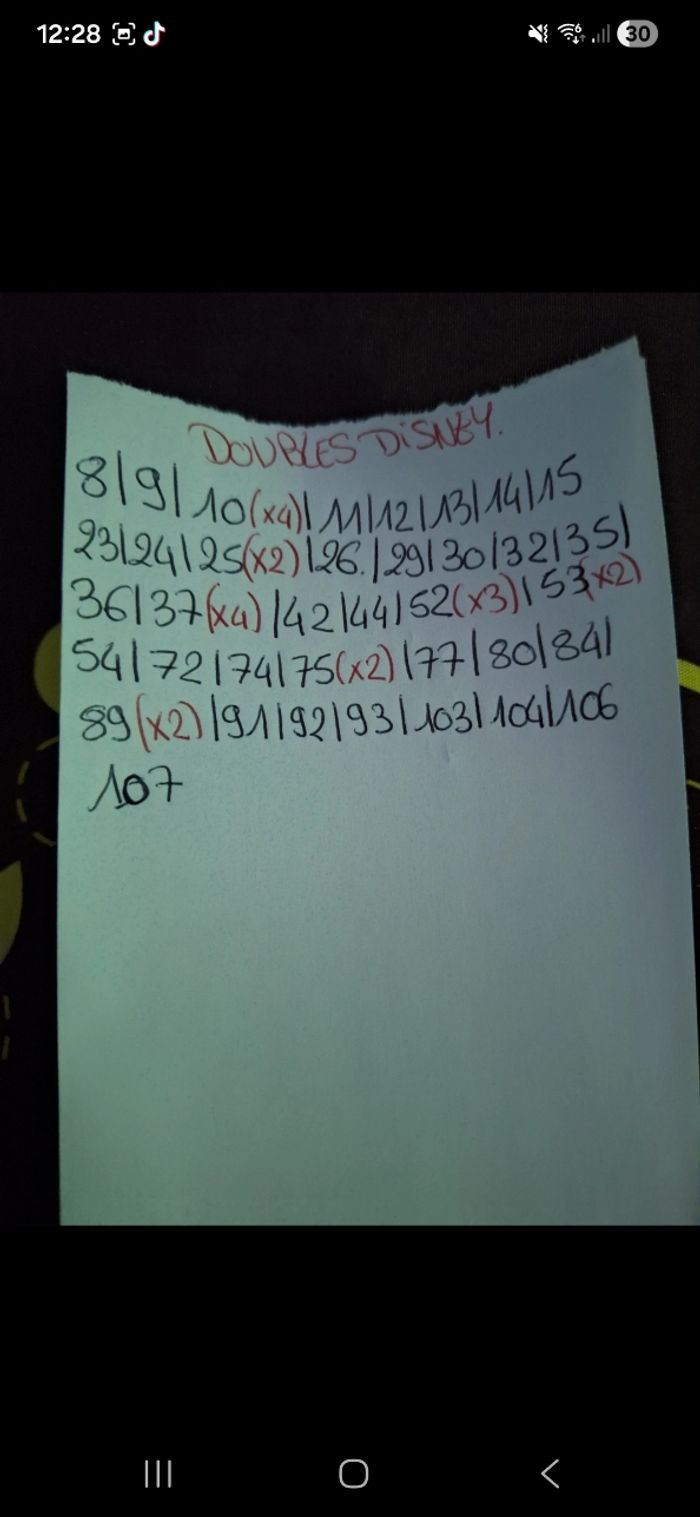 12:28
30
DOUBLES DISNEY.
8|9|10(x4)|11|12|13|14|15
23|24|25(x2)|26.|29|30|32|35|
36|37(x4)|42|44|52(x3)|53(x2)
54|72|74|75(x2)|77|80|84|
89(x2)|91|92|93|103|104|106
107